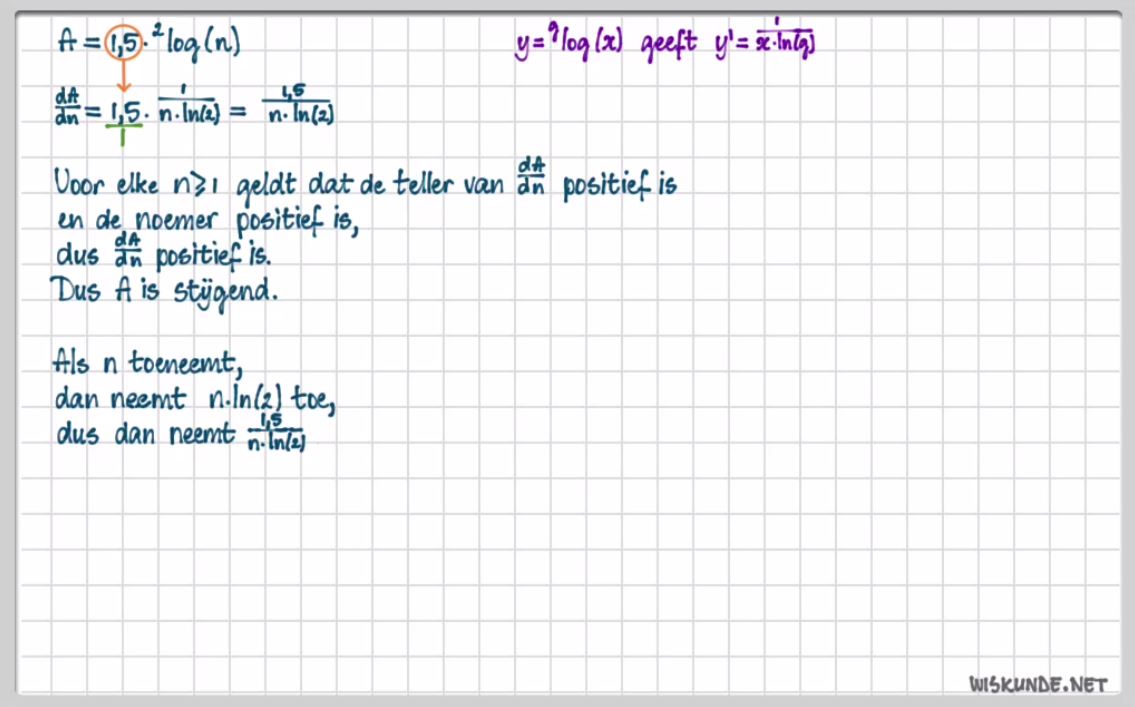 A = 1,5 · ²log(n)
y = ᵍlog(x) geeft y' = 1/(x·ln(g))
dA/dn = 1,5/1 · 1/(n·ln(2)) = 1,5/(n·ln(2))
Voor elke n ⩾ 1 geldt dat de teller van dA/dn positief is
en de noemer positief is,
dus dA/dn positief is.
Dus A is stijgend.
Als n toeneemt,
dan neemt n·ln(2) toe,
dus dan neemt 1,5/(n·ln(2))
WISKUNDE.NET